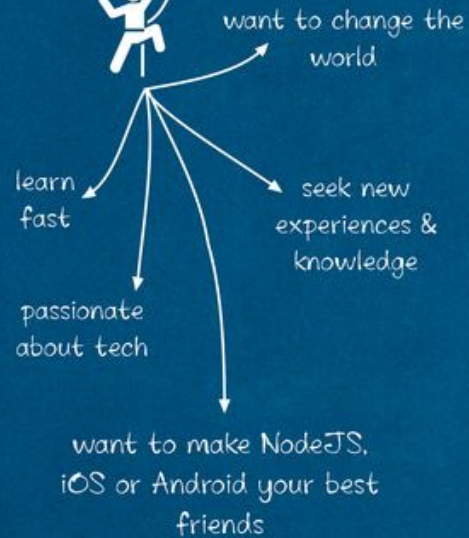 want to change the
world
learn
fast
seek new
experiences &
knowledge
passionate
about tech
want to make NodeJS,
iOS or Android your best
friends